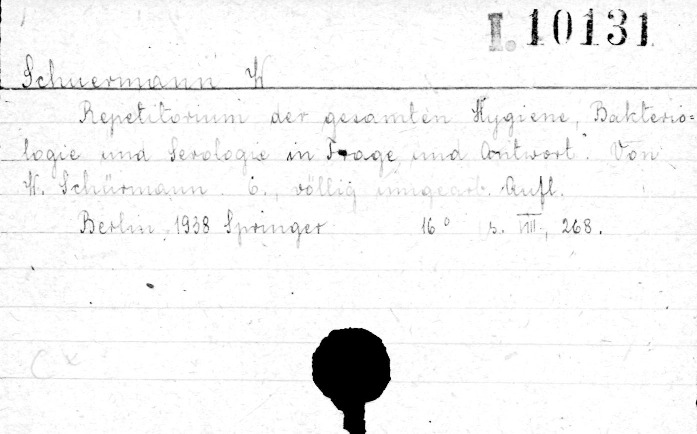 I. 10131
Schuermann W
Repetitorium der gesamten Hygiene, Bakterio=
logie und Serologie in Frage und Antwort. Von
W. Schürmann. 6., völlig umgearb. Aufl.
Berlin 1938 Springer 16° s. VIII, 268.
C x